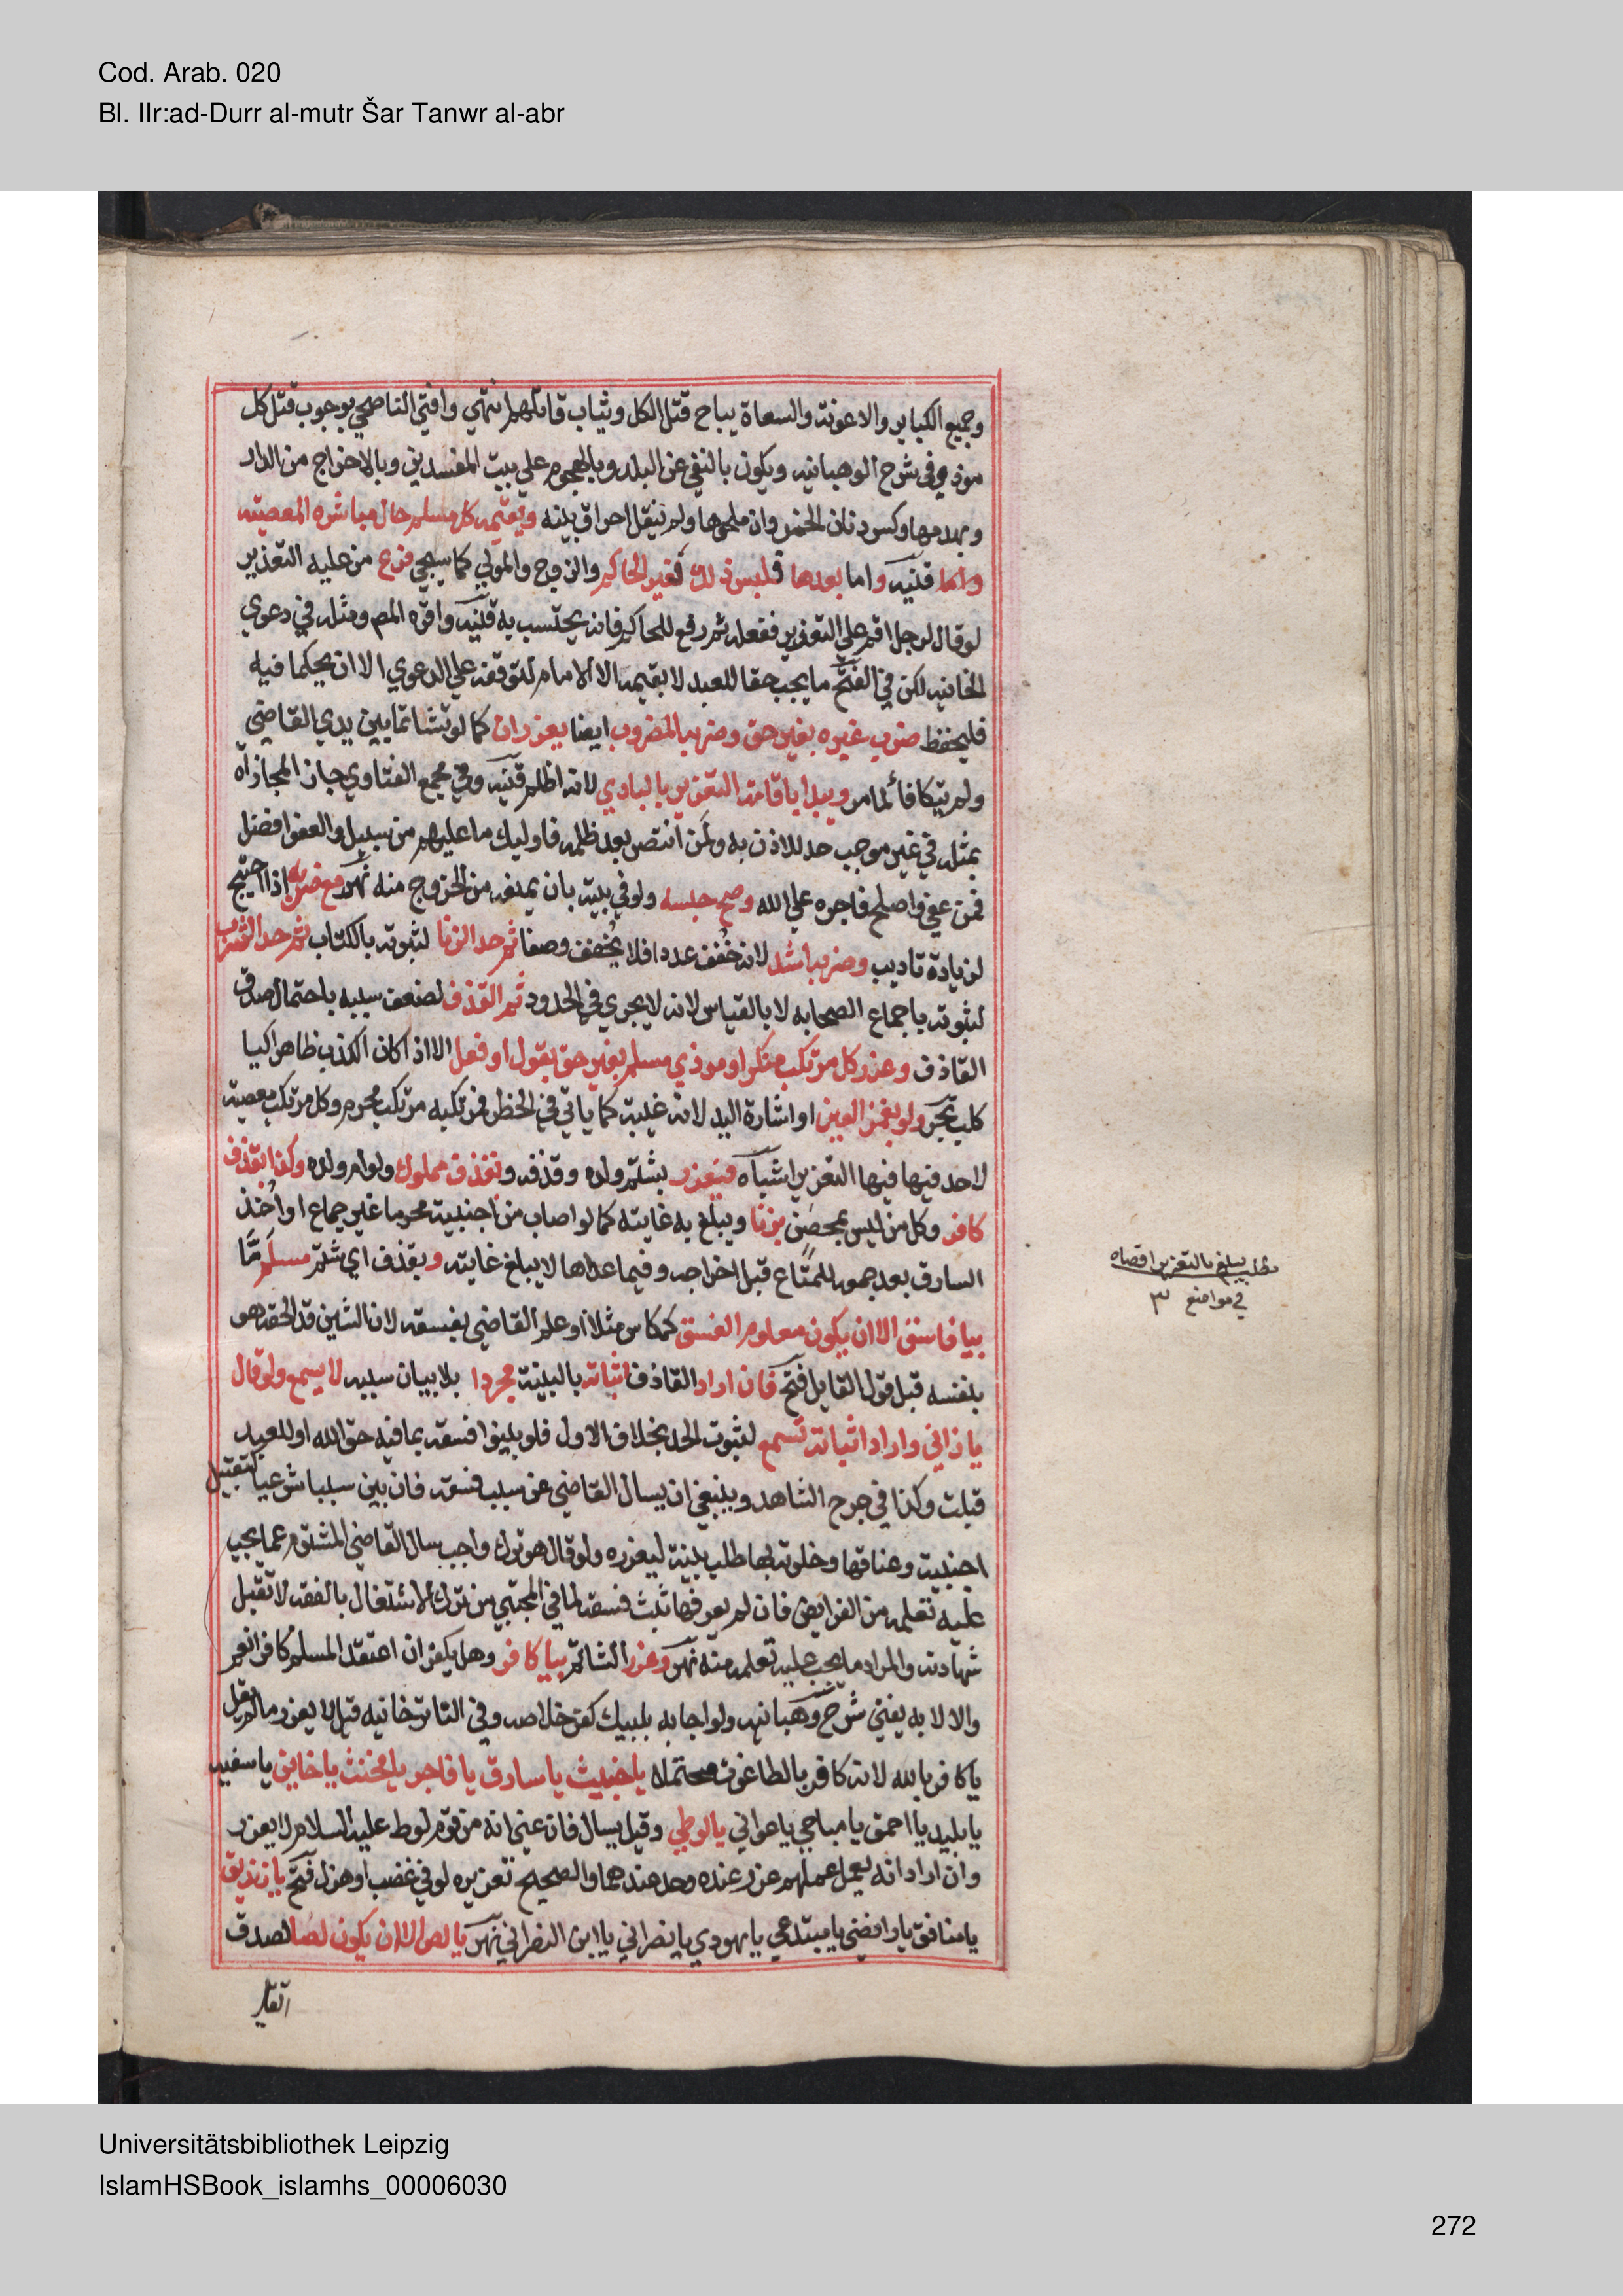 Cod. Arab. 020
Bl. IIr:ad-Durr al-mutr Šar Tanwr al-abr
وجميع الكباير والاعونة والسعاة يباح قتل الكل ويثاب قاتلهم انتهي وافتي الناصحي بوجوب قتل كل
موذي وفي شرح الوهبانيه ويكون بالنفي عن البلد وبالهجوم علي بيت المفسدين وبالاخراج من الدار
وبهدمها وكسر دنان الخمر وان ملحوها ولم ينقل احراق بيته ويقيمه كل مسلم حال مباشره المعصيته
واما قنيه واما بعدها فليس ذلك لغير الحاكم والزوج والمولي كما سيجي فرع من عليه التعذير
لو قال لرجل اقم علي التعزير ففعله ثم رفع للحاكم فانه يحتسب به قنيه واقره المص ومثله في دعوي
الخانيه لكن في الفتح ما يجب حقا للعبد لا يقيمه الا الامام لتوقفه علي الدعوي الا ان يحكما فيه
فليحفظ ضرب غيره بغير حق وضربه المضروب ايضا يعزران كما لو تشاتما بين يدي القاضي
ولم يتكافأ لما مر ويبدا باقامة التعزير بالبادي لانه اظلم قنيه وفي مجمع الفتاوي جاز المجازاة
بمثله في غير موجب حد للاذن به ولمن انتصر بعد ظلمه فاوليك ما عليهم من سبيل والعفو افضل
فمن عفي واصلح فاجره علي الله وصح حبسه ولو في بيته بان يمنعه من الخروج منه نهر مع ضربه اذا احتيج
لزيادة تاديب وضربه اشد لانه خفف عددا فلا يخفف وصفا ثم حد الزنا لثبوته بالكتاب ثم حد الشرب
لثبوته باجماع الصحابه لا بالقياس لانه لا يجري في الحدود ثم القذف لضعف سببه باحتمال صدق
القاذف وعزر كل مرتكب منكر او موذي مسلم بغير حق بقول او فعل الا اذا كان الكذب ظاهرا كيا
كلب بحر ولو بغمز العين او اشارة اليد لانه غيبة كما ياتي في الحظر فمرتكبه مرتكب محرم وكل مرتكب معصية
لا حد فيها فيها التعزير اشباه فيعزر بشتم ولده وقذفه وبقذف مملوك ولو ام ولده وكذا بقذف
كافر وكل من ليس بمحصن بزنا ويبلغ به غايته كما لو اصاب من اجنبية محرما غير جماع او اخذ
السارق بعد جمعه للمتاع قبل اخراجه وفيما عداها لا يبلغ غايته وبقذف اي شتم مسلم ما
بيا فاسق الا ان يكون معلوم الفسق كمكاس مثلا او علم القاضي بفسقه لان الشين قد الحقه هو
بنفسه قبل قول القايل فتح فان اراد القاذف اثباته بالبينة مجردا بلا بيان سببه لا يسمع ولو قال
يا زاني واراد اثباته تسمع لثبوت الحد بخلاف الاول فلو بينوا فسقه بما فيه حق الله او للعبد
قبلت وكذا في جرح الشاهد وينبغي ان يسال القاضي عن سبب فسقه فان بين سببا شرعيا كتقبيل
اجنبية وعناقها وخلوته بها طلب بينة ليعزره ولو قال هو ترك واجب سال القاضي المشتوم عما يجب
عليه تعلمه من الفرايض فان لم يعرفها ثبت فسقه لما في المجتبي من ترك الاشتغال بالفقه لا تقبل
شهادته والمراد ما يجب عليه تعلمه منه نهر وعزر الشاتم بيا كافر وهل يكفر ان اعتقد المسلم كافرا نعم
والا لا به يفتي شرح وهبانيه ولو اجابه بلبيك كفر خلاصه وفي التاترخانيه قيل لا يعزر ما لم يقل
يا كافر بالله لانه كافر بالطاغوت محتملا يا خبيث يا سارق يا فاجر يا مخنث يا خاين يا سفيه
يا بليد يا احمق يا مباحي يا عواني يا لوطي وقيل يسال فان عني انه من قوم لوط عليه السلام لا يعزر
وان اراد انه يعمل عملهم عزر عنده وحد عندهما والصحيح تعزيره لو في غضب او هزل فتح يا زنديق
يا منافق يا رافضي يا مبتدعي يا يهودي يا نصراني يا ابن النصراني نهر يا لص الا ان يكون لصا لصدق
مطلب يبلغ بالتعزير اقصاه
في مواضع ٣
القايل
Universitätsbibliothek Leipzig
IslamHSBook_islamhs_00006030
272